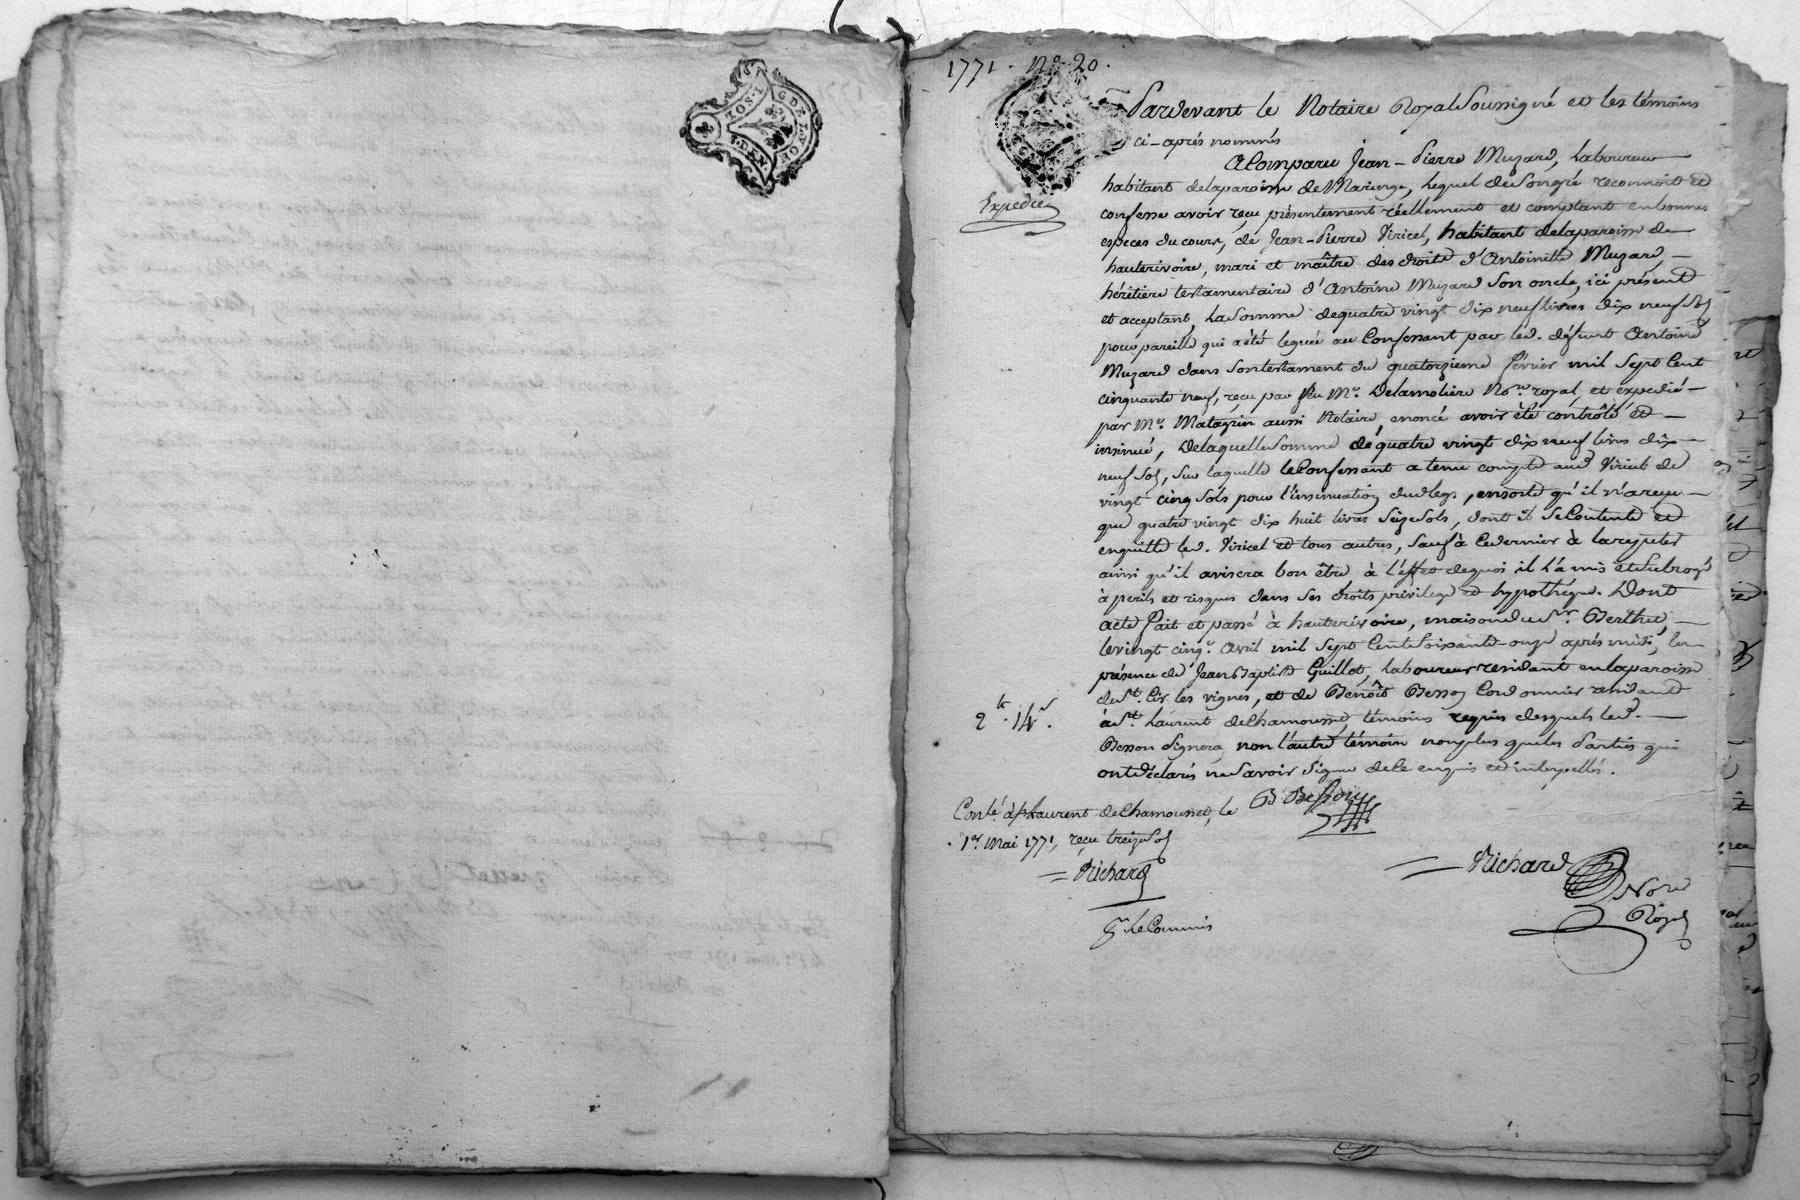 1771. No. 20.
Pardevant le Notaire Royal Soussigné et les témoins
ci-après nommés
Expediée
a Comparu Jean-Pierre Muzard, Laboureur
habitant delaparoisse de Maringe, lequel deSongré reconnoit et
confesse avoir reçu présentement réellement et comptant enbonnes
especes du cours, de Jean-Pierre Viricel, habitant delaparoisse de
hauterivoire, mari et maître des droits d'Antoinette Muzard,
héritiere testamentaire d'Antoine Muzard Son oncle, ici présent
et acceptant, LaSomme dequatre vingt dix neuf livres dix neuf Sols
pour pareille qui aété leguée au Confessant par led. défunt Antoine
Muzard dans Sontestament du quatorzieme février mil Sept Cent
cinquante neuf, reçu par feu Me. Delamoliere Nore. royal, et expedié
par Me. Matagrin aussi Notaire, enoncé avoir été contrôlé et
insinué, DelaquelleSomme de quatre vingt dix neuf livres dix
neuf Sols, Sur laquelle leConfessant a tenu compte aud Viricel de
vingt cinq Sols pour l'insinuation dudlegs, ensorte qu'il n'areçu
que quatre vingt dix huit livres SeizeSols, dont il SeContente et
enquitte led. Viricel et tous autres, Sauf à Cedernier à larepeter
ainsi qu'il avisera bon être à l'effet dequoi il l'a mis etSubrogé
à perils et risques dans Ses droits privilege et hypothéque. Dont
acte fait et passé à hauterivoire, maisonduSr. Berthet,
levingt cinq. avril mil Sept CentSoixante-onze après midi, En
présence de JeanBaptiste Guillot, Laboureur residant enlaparoisse
deSt. Cir les vignes, et de Benoît Besson Cordonnier residant
2 lt. 14 s.
àSt. Laurent deChamousset, témoins requis desquels led.
Besson Signera, non l'autre témoin nonplus queles Parties qui
ontdéclarés neSavoir Signer deCe enquis et interpellés.
B Besson
Conlé. àSt Laurent deChamousset, le
1er. mai 1771, reçu treizeSols
Richard
pr. le Commis
Richard
Nore
Royal